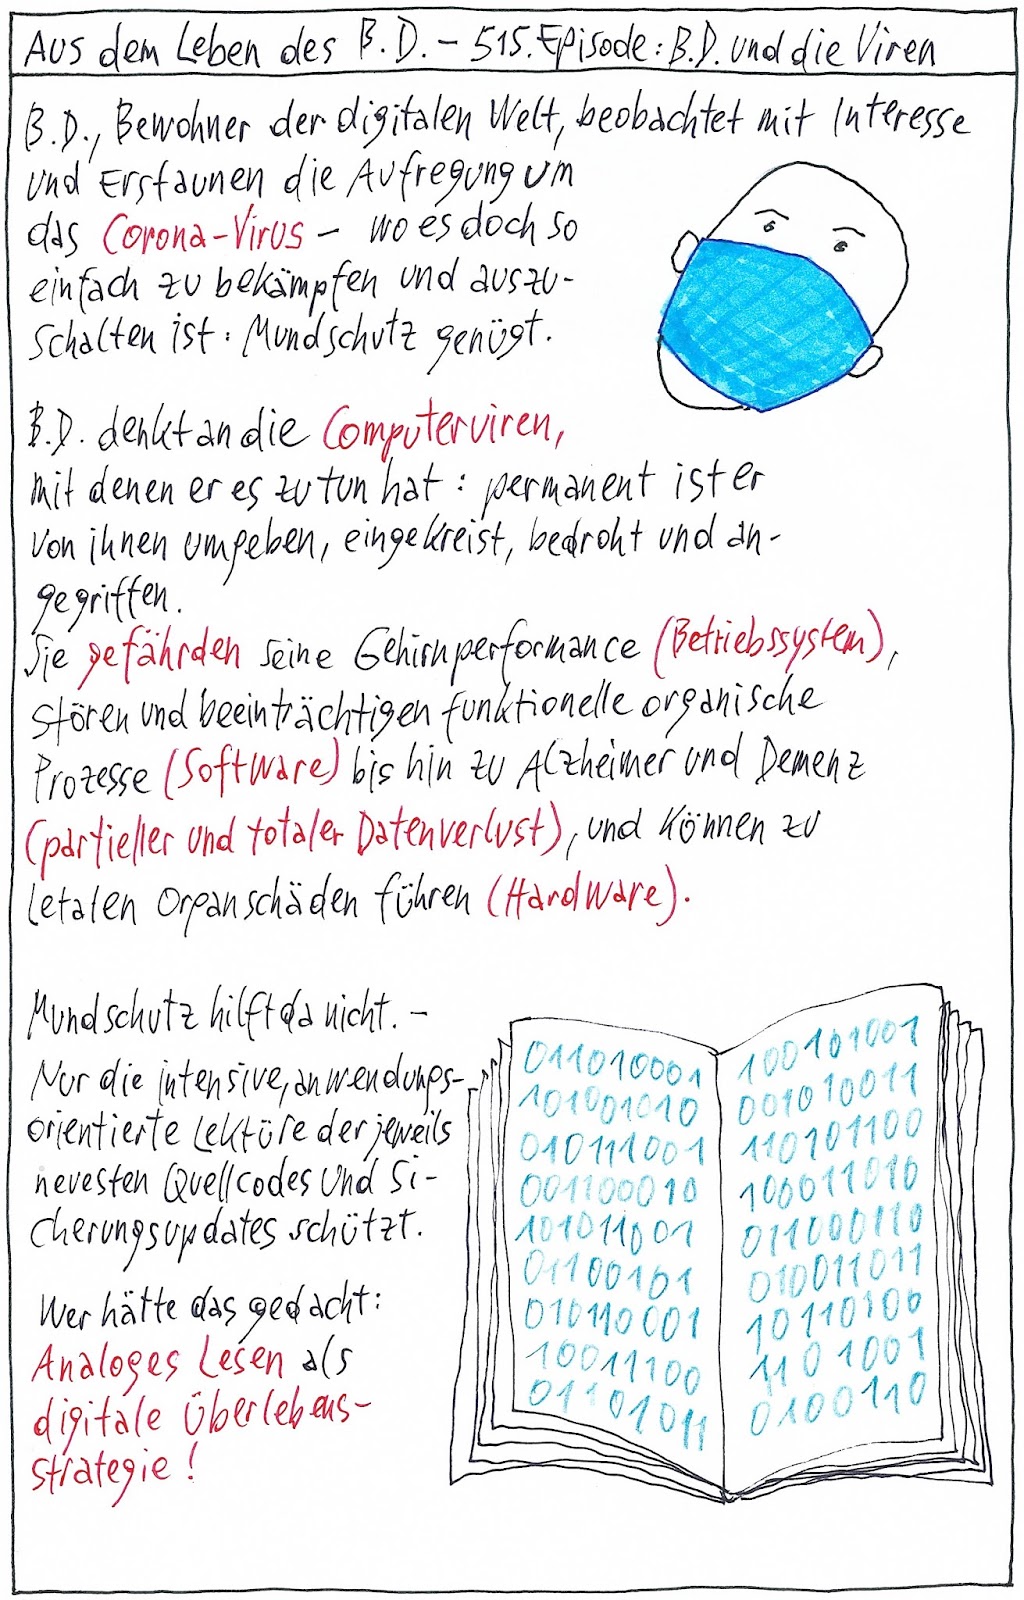 Aus dem Leben des B.D. – 515. Episode: B.D. und die Viren
B.D., Bewohner der digitalen Welt, beobachtet mit Interesse
und Erstaunen die Aufregung um
das Corona-Virus – wo es doch so
einfach zu bekämpfen und auszu-
schalten ist: Mundschutz genügt.
B.D. denkt an die Computerviren,
mit denen er es zu tun hat: permanent ist er
von ihnen umgeben, eingekreist, bedroht und an-
gegriffen.
Sie gefährden seine Gehirnperformance (Betriebssystem),
stören und beeinträchtigen funktionelle organische
Prozesse (Software) bis hin zu Alzheimer und Demenz
(partieller und totaler Datenverlust), und können zu
letalen Organschäden führen (Hardware).
Mundschutz hilft da nicht. –
Nur die intensive, anwendungs-
orientierte Lektüre der jeweils
neuesten Quellcodes und Si-
cherungsupdates schützt.
Wer hätte das gedacht:
Analoges Lesen als
digitale Überlebens-
strategie!
011010001
101001010
010111001
001100010
101011001
01100101
010110001
10011100
01101011
100101001
001010011
110101100
100011010
011000110
010011011
10110100
1101001
0100110